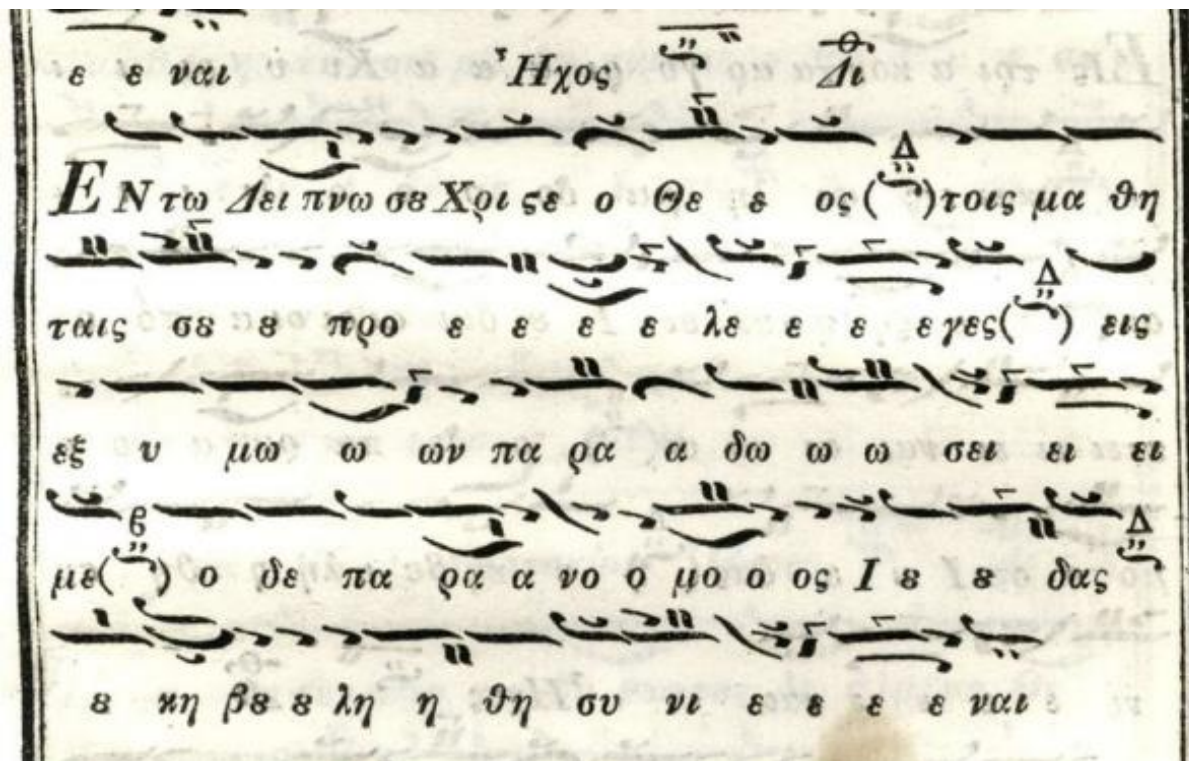 ε ε ναι Ἦχος Δι
ΕΝ τω Δει πνω σȣ Χρι ϛε ο Θε ε ος ( Δ ) τοις μα θη
ταις σȣ ȣ προ ε ε ε ε λε ε ε ε γες ( Δ ) εις
εξ υ μω ω ων πα ρα α δω ω ω σει ει ει
με ( β ) ο δε πα ρα α νο ο μο ο ος Ι ȣ ȣ δας Δ
ȣ κη βȣ ȣ λη η θη συ νι ε ε ε ε ναι